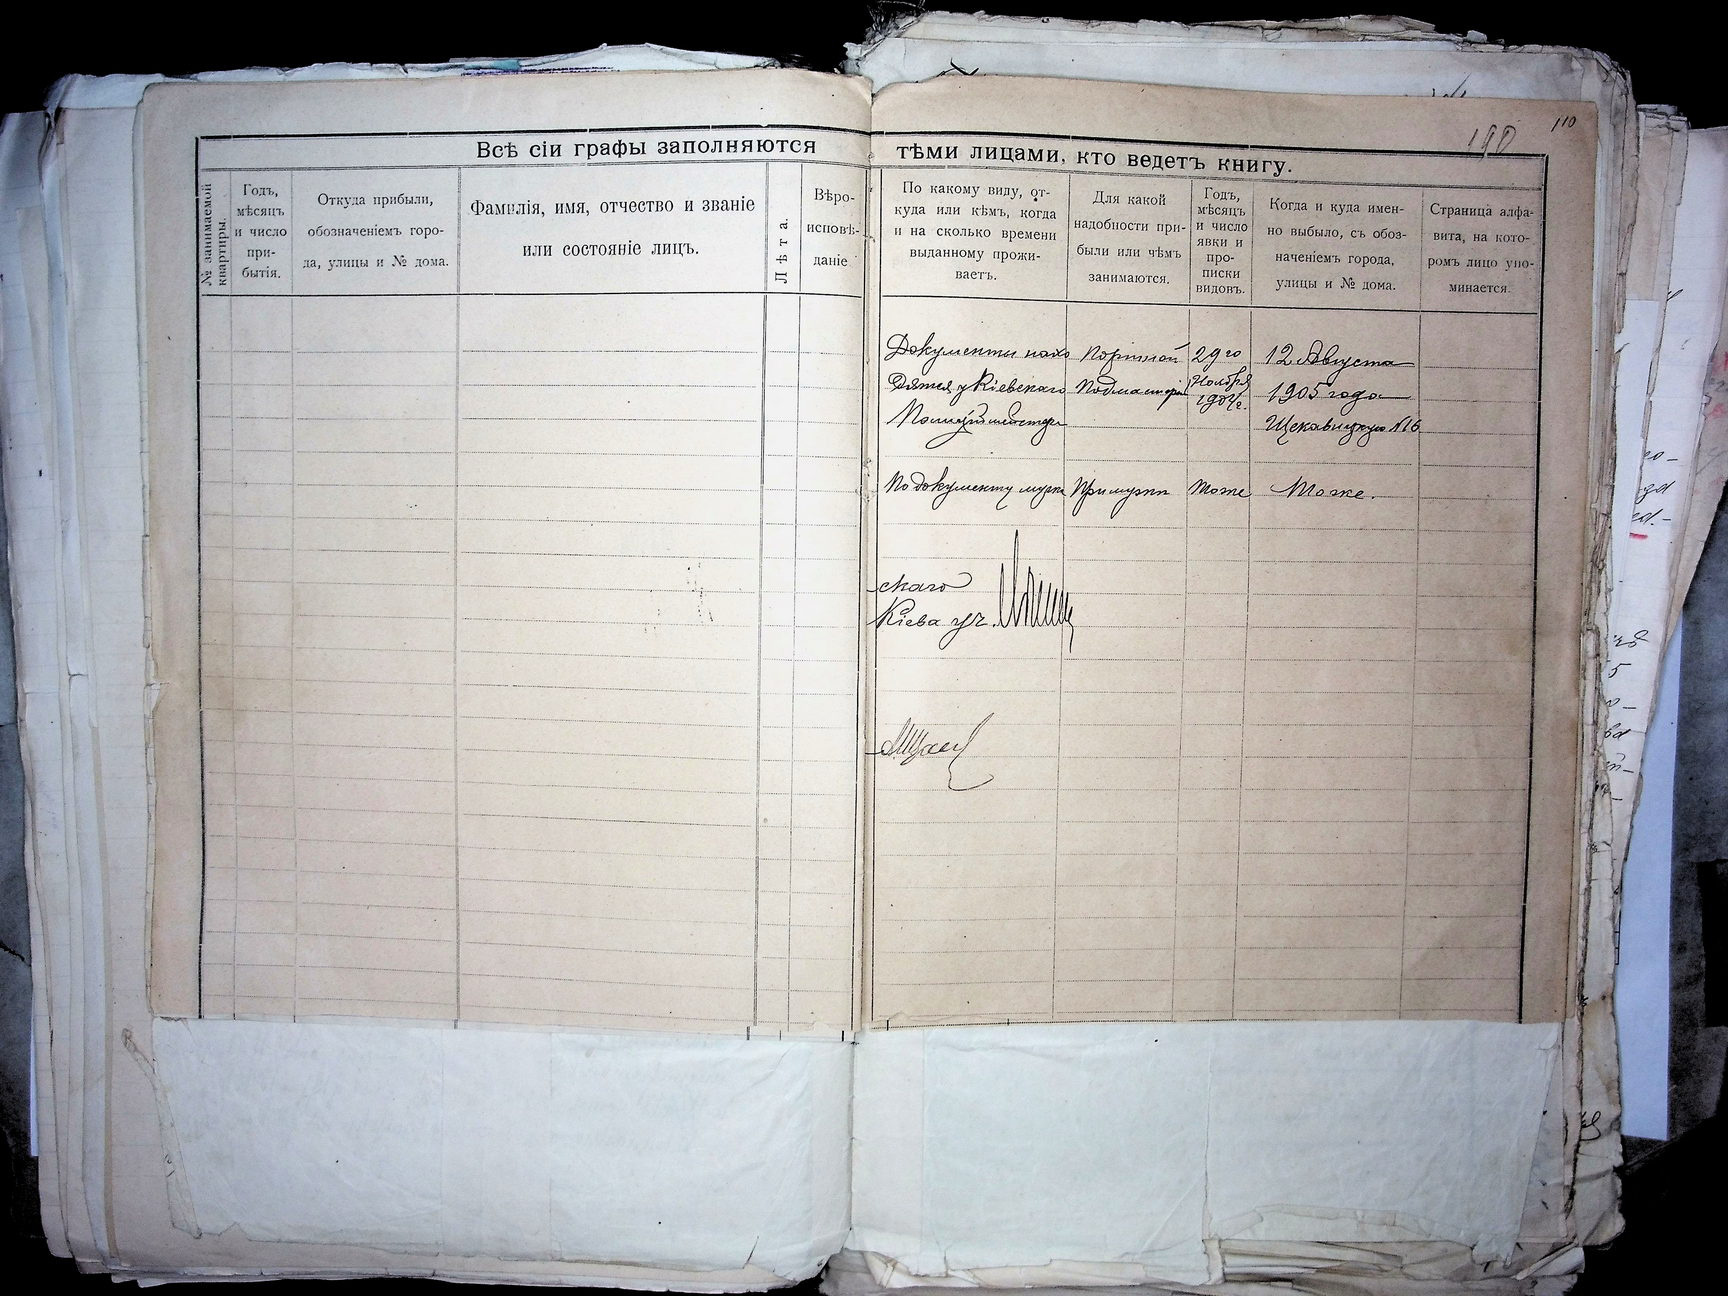 110
190
Всѣ сіи графы заполняются тѣми лицами, кто ведетъ книгу.
№ занимаемой квартиры.
Годъ,
мѣсяцъ
и число
при-
бытія.
Откуда прибыли,
обозначеніемъ горо-
да, улицы и № дома.
Фамилія, имя, отчество и званіе
или состояніе лицъ.
Лѣта.
Вѣро-
исповѣ-
даніе
По какому виду, от-
куда или кѣмъ, когда
и на сколько времени
выданному прожи-
ваетъ.
Для какой
надобности при-
были или чѣмъ
занимаются.
Годъ,
мѣсяцъ
и число
явки и
про-
писки
видовъ.
Когда и куда имен-
но выбыло, съ обоз-
наченіемъ города,
улицы и № дома.
Страница алфа-
вита, на кото-
ромъ лицо упо-
минается.
Документы нахо
дятся у Кіевскаго
Полицій мейстера
Портной
Подмастерье
29го
Ноября
1904г.
12 Августа
1905 года
Щекавицкую №6
По документу мужа
При мужи
Тоже
Тоже.
скаго
Кіева уч.